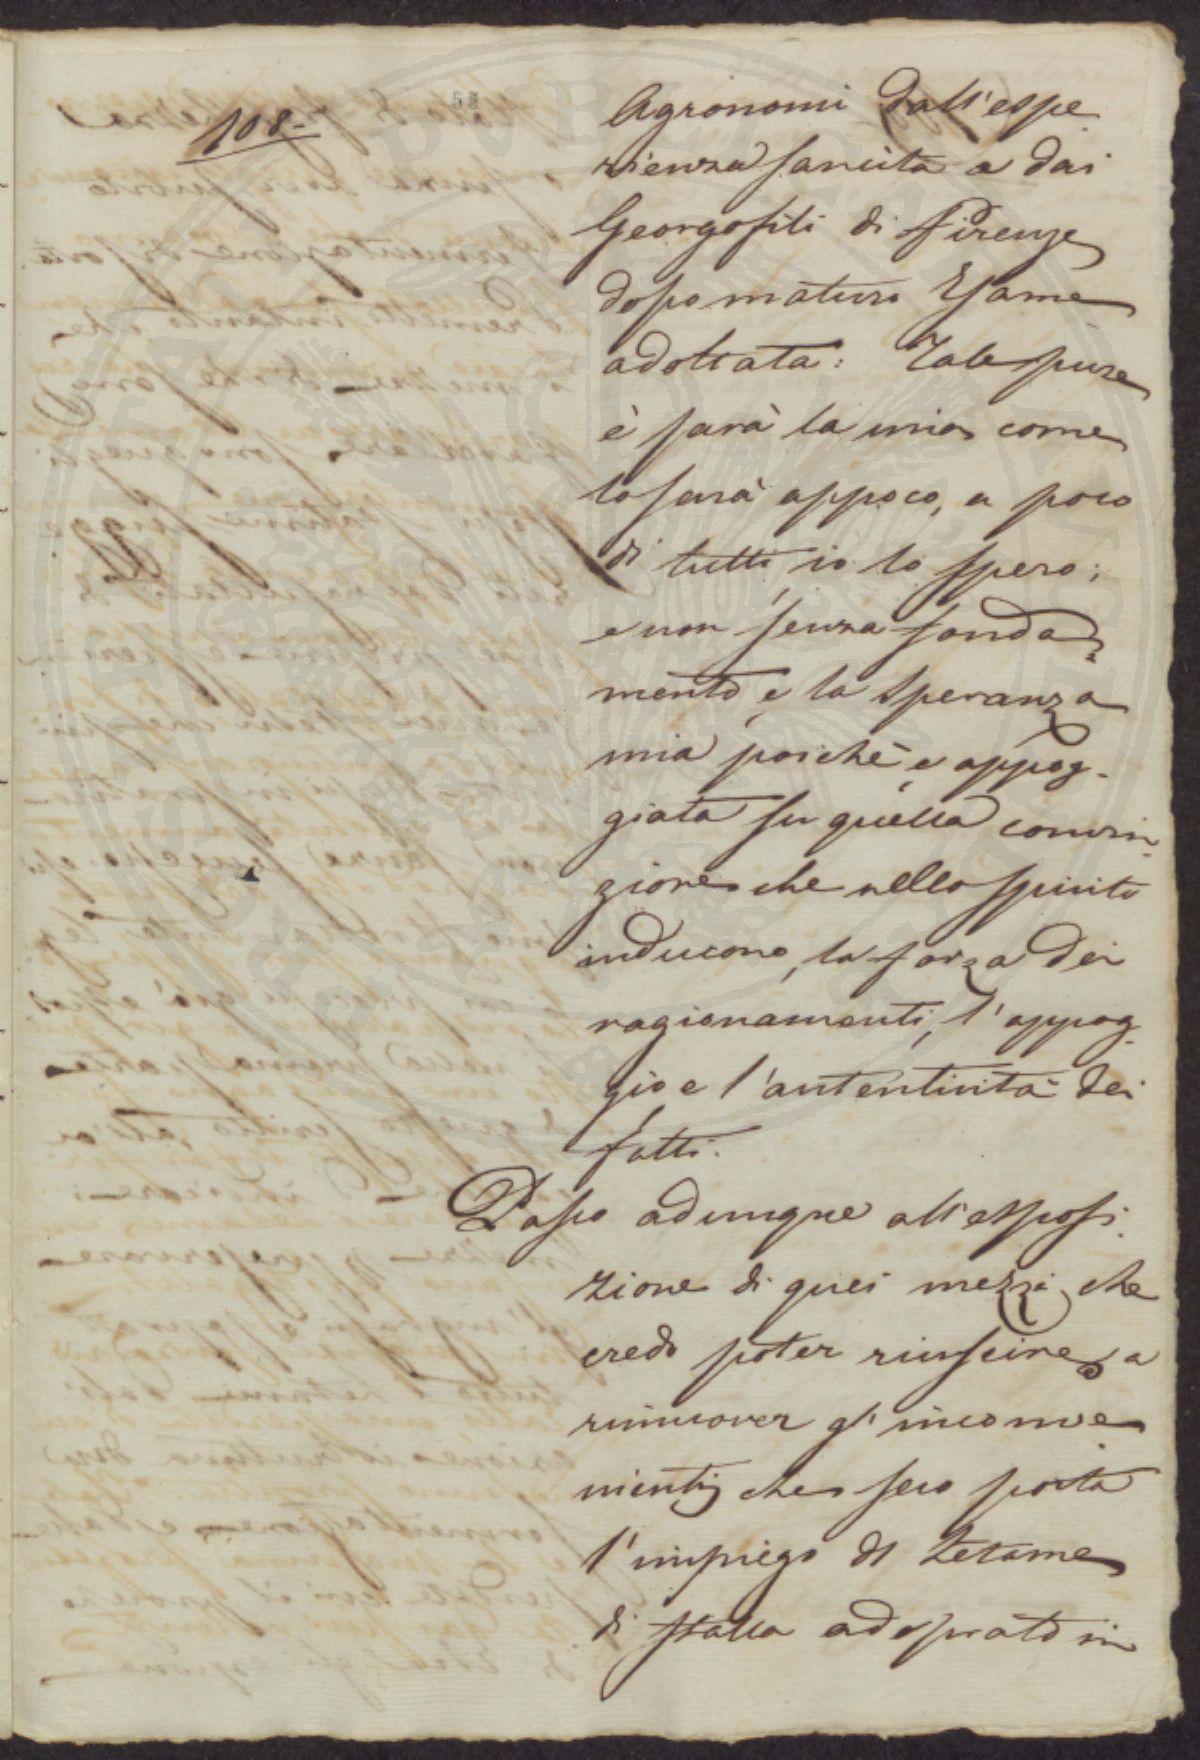 53
108-
Agronomi dall'espe
rienza sancita e dai
Georgofili di Firenze
dopo maturo Esame
adottata: Tale pure
è sarà la mia come
lo sarà appoco, a poco
di tutti, io lo spero;
e non senza fonda=
mento è la speranza
mia poichè è appog-
giata su quella convin-
zione che nello spirito
inducono, la forza dei
ragionamenti, l'appog-
gio e l'autenticità dei
fatti.
Passo adunque all'esposi
zione di quei mezzi che
credo poter riuscire a
rimuover gl'inconve
nienti che seco porta
l'impiego di Letame
di stalla adoprato in